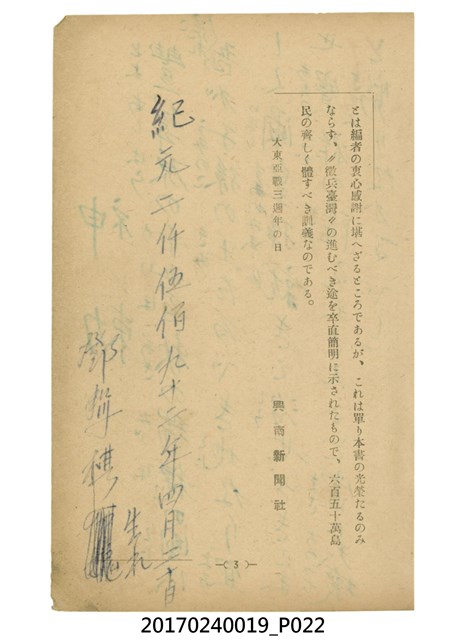 とは編者の衷心感謝に堪へざるところであるが、これは單り本書の光榮たるのみ
ならず、〃徵兵臺灣〃の進むべき途を卒直簡明に示されたもので、六百五十萬島
民の齊しく體すべき訓義なのである。
大東亞戰三週年の日
興南新聞社
紀元二仟伍佰九十二年四月二十日
生れ
鄧
—( 3 )—
20170240019_P022